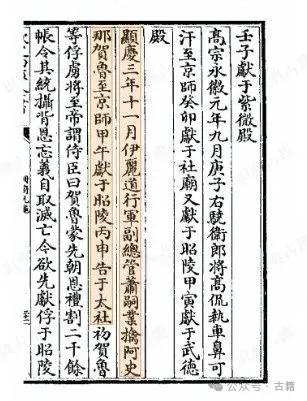 壬子獻于紫微殿
高宗永徽元年九月庚子右驍衛郎將高侃執車鼻可
汗至京師癸卯獻于社廟又獻于昭陵甲寅獻于武德
殿
顯慶三年十一月伊麗道行軍副總管蕭嗣業擒阿史
那賀魯至京師甲午獻于昭陵丙申告于太社初賀魯
等俘虜將至帝謂侍臣曰賀魯蒙先朝恩禮割二千餘
帳令其統攝背恩忘義自取滅亡今欲先獻俘于昭陵
公众号·古籍